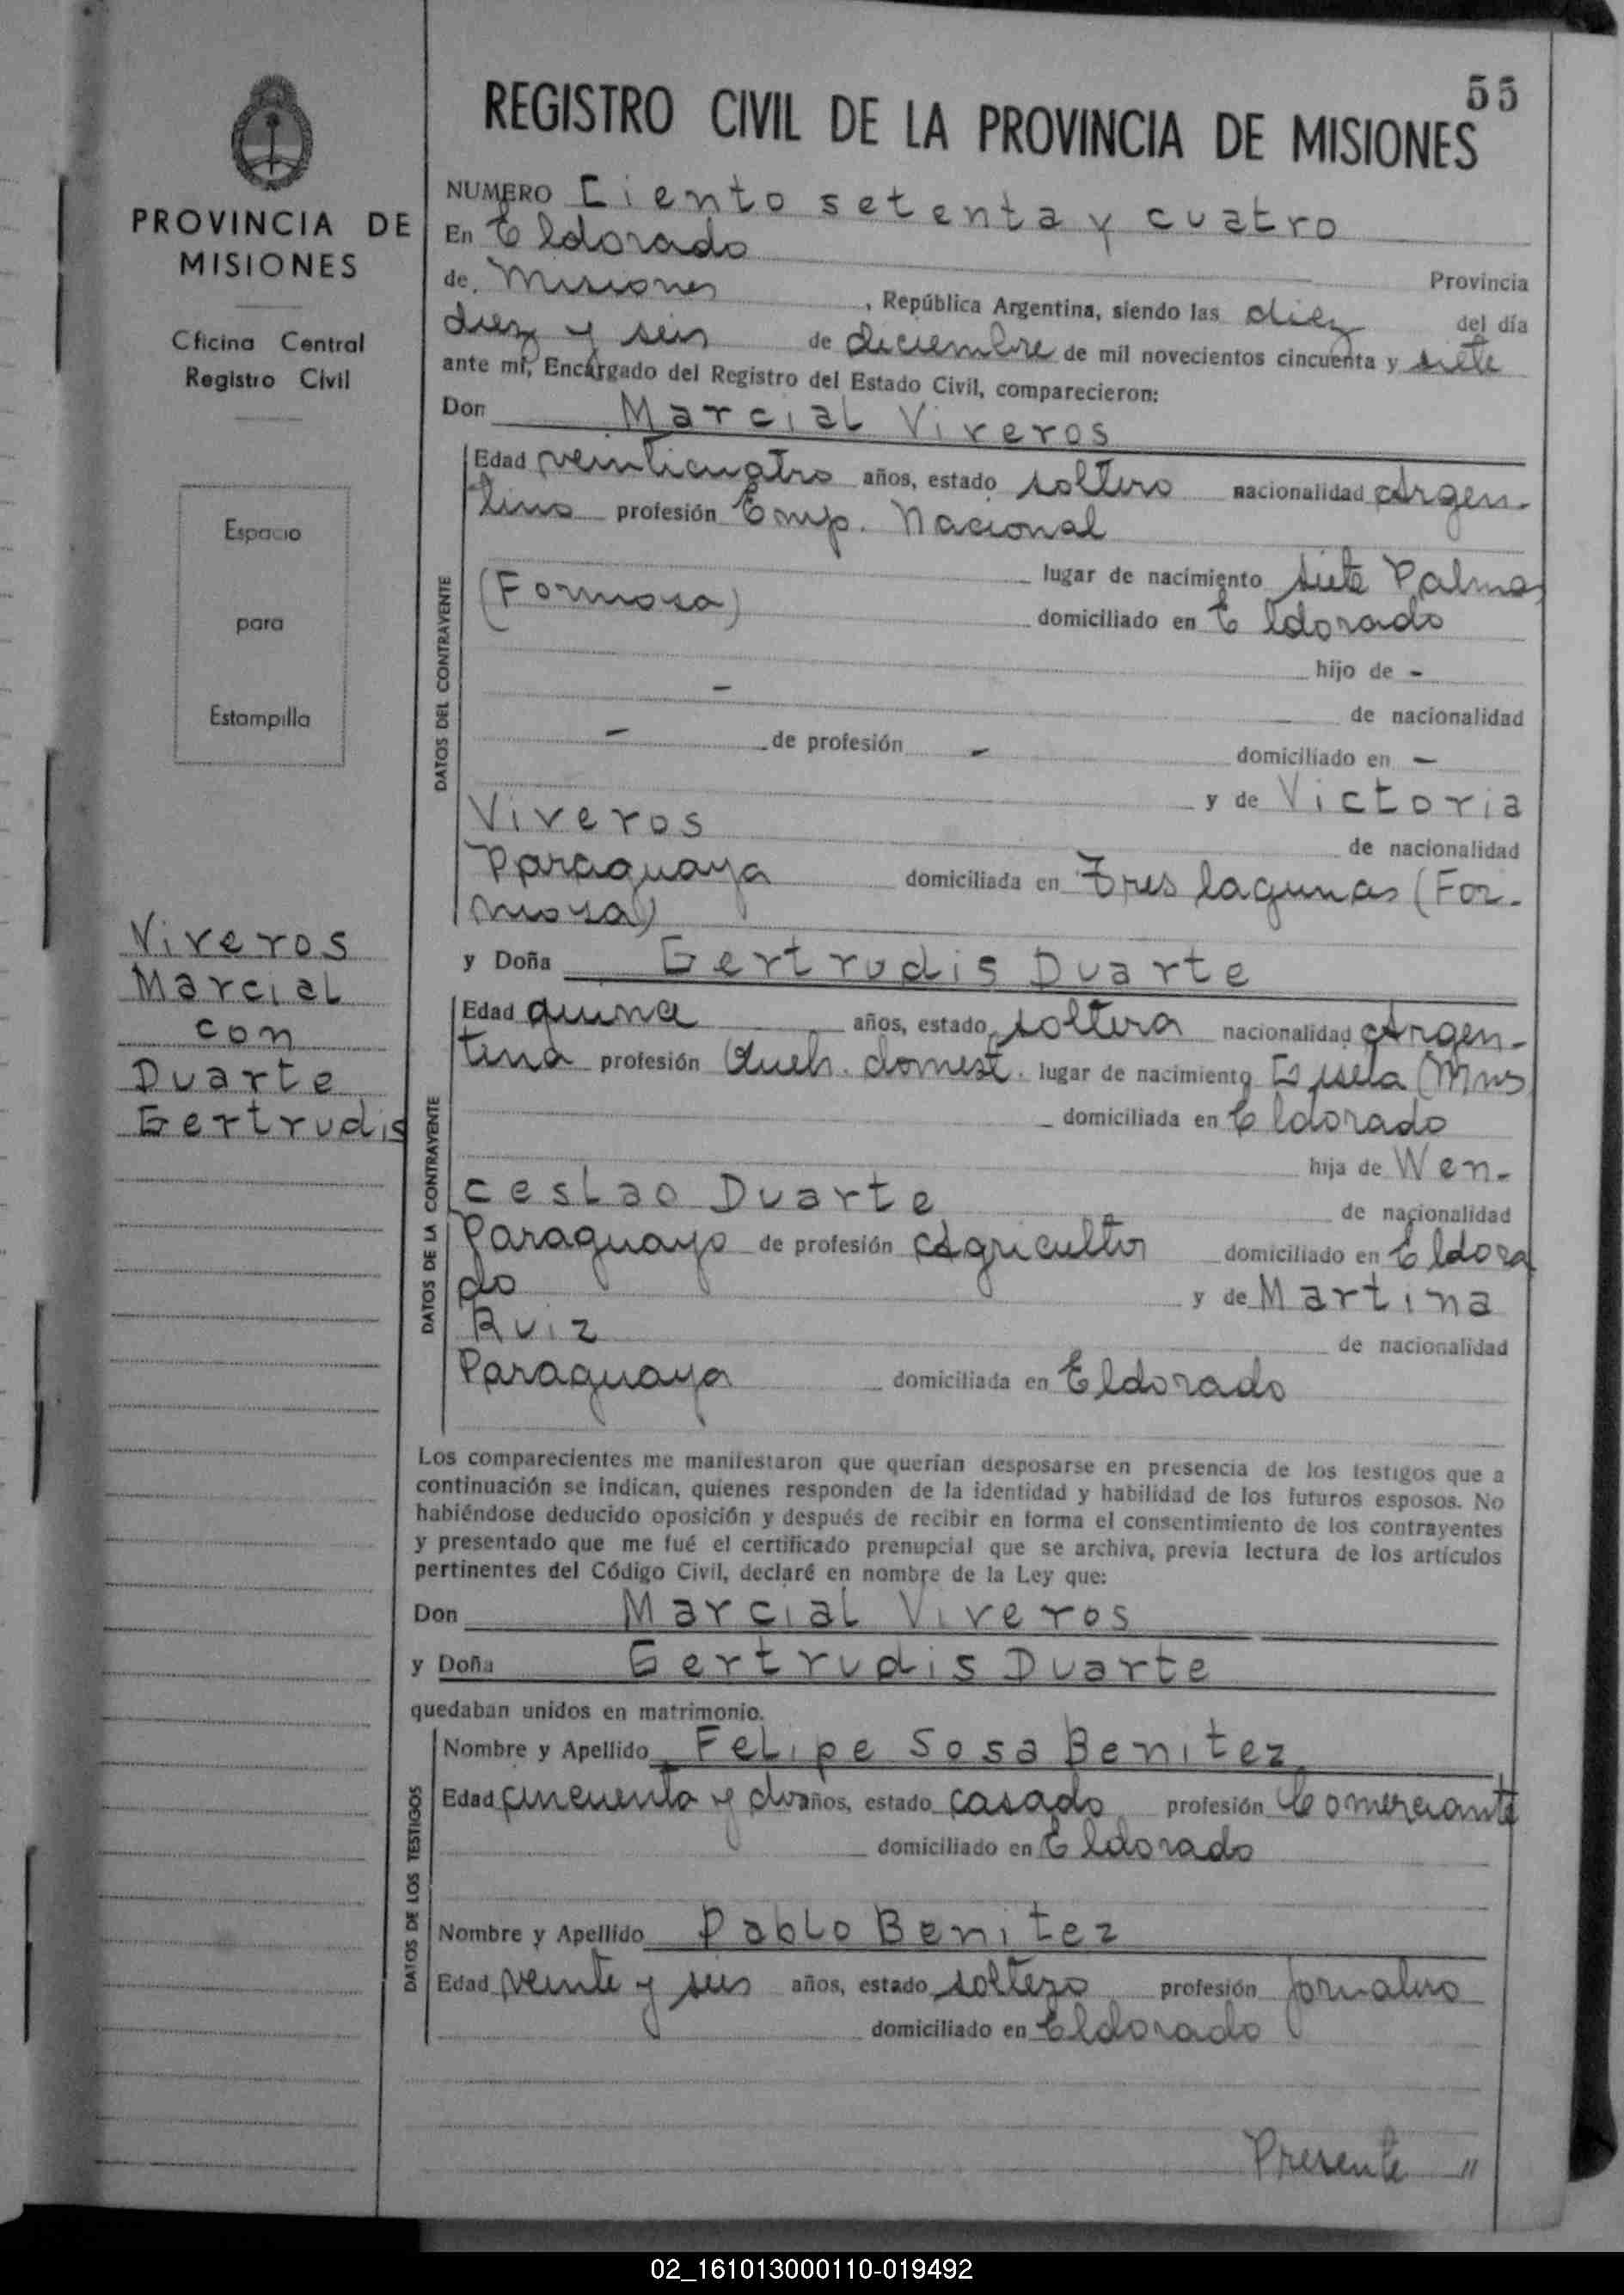 55
REGISTRO CIVIL DE LA PROVINCIA DE MISIONES
PROVINCIA DE
MISIONES
Oficina Central
Registro Civil
Espacio
para
Estampilla
Viveros
Marcial
con
Duarte
Gertrudis
NUMERO Ciento setenta y cuatro
En Eldorado
Provincia
de Misiones, República Argentina, siendo las diez del día
diez y seis de diciembre de mil novecientos cincuenta y siete
ante mí, Encargado del Registro del Estado Civil, comparecieron:
Don Marcial Viveros
DATOS DEL CONTRAYENTE
Edad veinticuatro años, estado soltero nacionalidad Argen-
tino profesión Emp. Nacional
lugar de nacimiento Siete Palmas
(Formosa) domiciliado en Eldorado
hijo de -
- de nacionalidad
- de profesión - domiciliado en -
y de Victoria
Viveros de nacionalidad
Paraguaya domiciliada en Tres lagunas (For-
mosa)
y Doña Gertrudis Duarte
DATOS DE LA CONTRAYENTE
Edad quince años, estado soltera nacionalidad Argen-
tina profesión Queh. domest. lugar de nacimiento (Mns)
domiciliada en Eldorado
hija de Wen-
ceslao Duarte de nacionalidad
Paraguayo de profesión Agricultor domiciliado en Eldora
do y de Martina
Ruiz de nacionalidad
Paraguaya domiciliada en Eldorado
Los comparecientes me manifestaron que querían desposarse en presencia de los testigos que a
continuación se indican, quienes responden de la identidad y habilidad de los futuros esposos. No
habiéndose deducido oposición y después de recibir en forma el consentimiento de los contrayentes
y presentado que me fué el certificado prenupcial que se archiva, previa lectura de los artículos
pertinentes del Código Civil, declaré en nombre de la Ley que:
Don Marcial Viveros
y Doña Gertrudis Duarte
quedaban unidos en matrimonio.
DATOS DE LOS TESTIGOS
Nombre y Apellido Felipe Sosa Benitez
Edad cincuenta y dos años, estado casado profesión Comerciante
domiciliado en Eldorado
Nombre y Apellido Pablo Benitez
Edad veinte y seis años, estado soltero profesión jornalero
domiciliado en Eldorado
Presente "
02_161013000110-019492